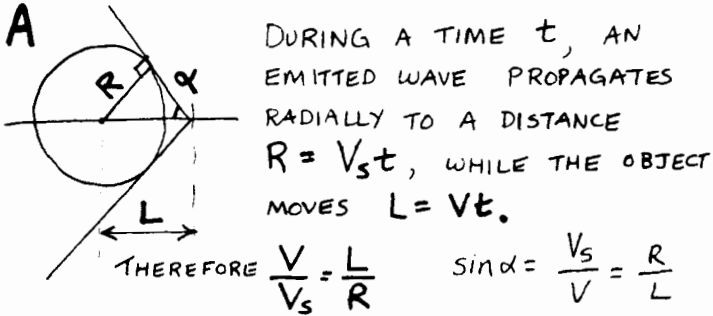 A
R
α
L
DURING A TIME t, AN
EMITTED WAVE PROPAGATES
RADIALLY TO A DISTANCE
R = Vst, WHILE THE OBJECT
MOVES L = Vt.
THEREFORE V/Vs = L/R
sin α = Vs/V = R/L